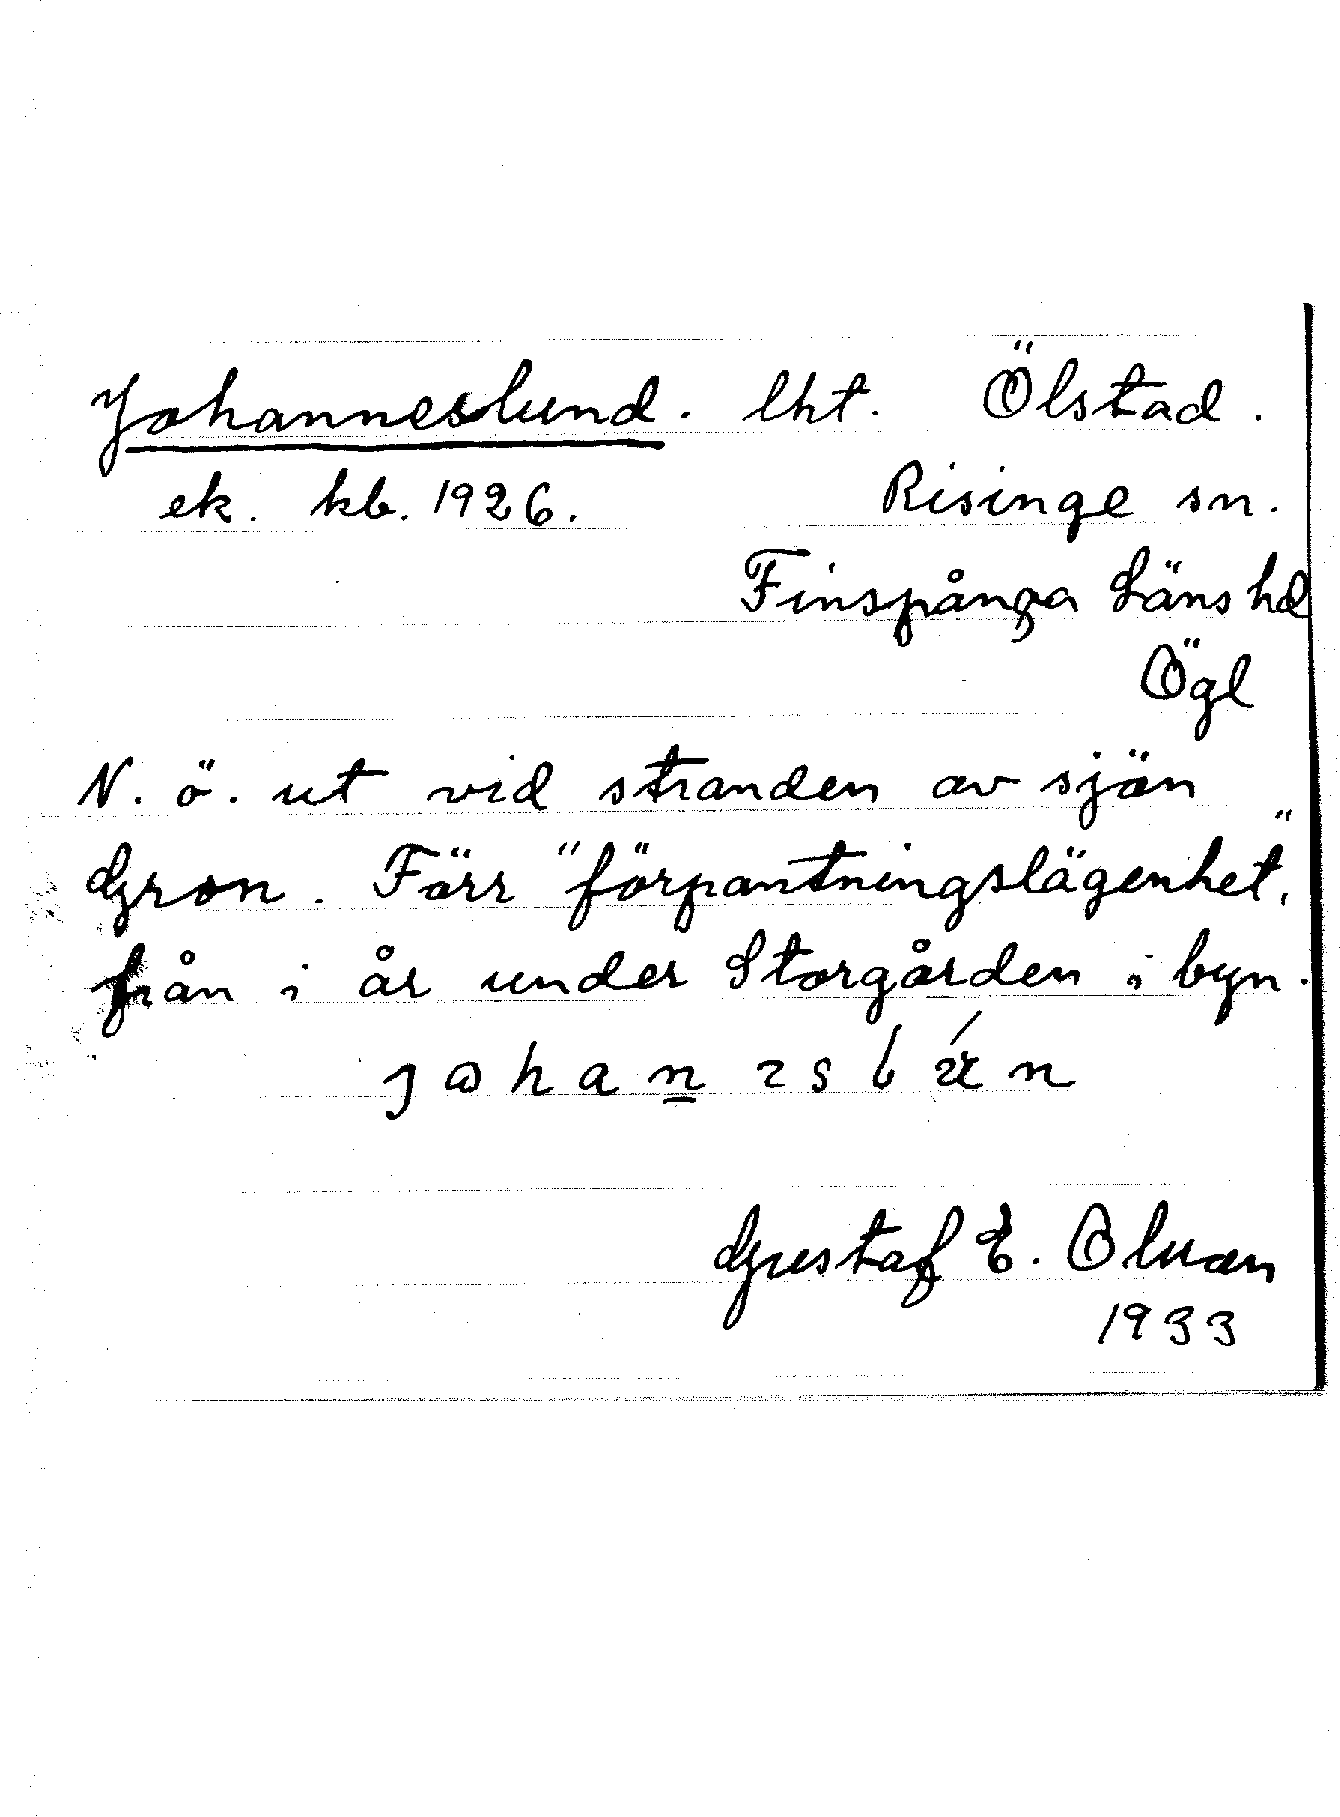 Johanneslund. lht. Ölstad.
ek. kb. 1926. Risinge sn.
Finspånga Läns hd
Ögl
N. ö. ut vid stranden av sjön
Gron. Förr "förpantningslägenhet",
från i år under Storgården i byn.
Gustaf E. Olsson
1933